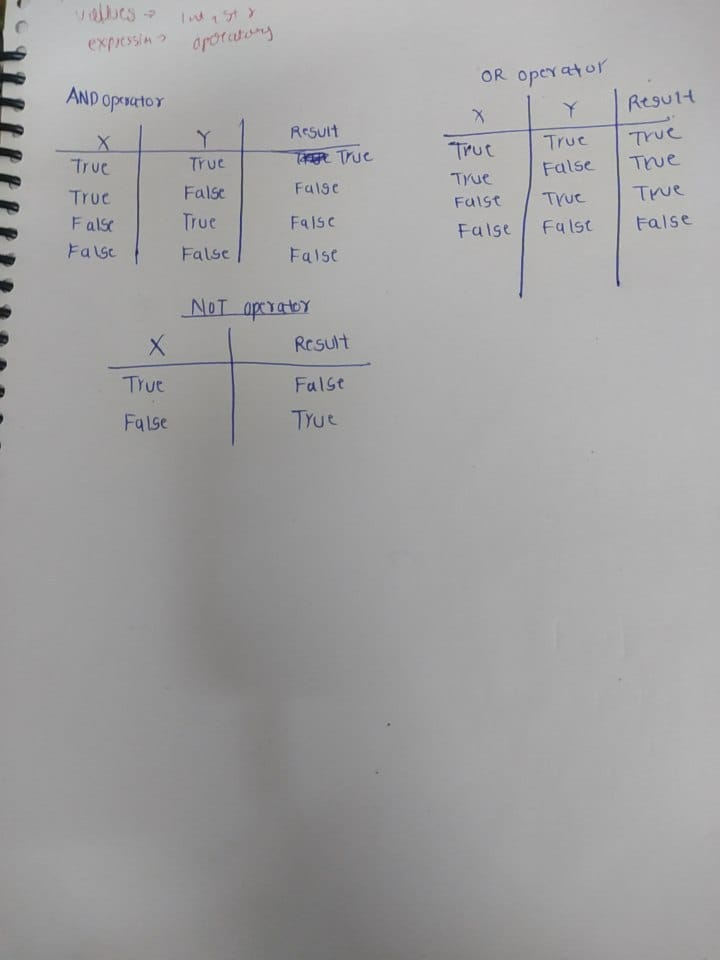 values → int, str
expression → operators
AND operator
X Y Result
True True True
True False False
False True False
False False False
OR operator
X Y Result
True True True
True False True
False True True
False False False
NOT operator
X Result
True False
False True